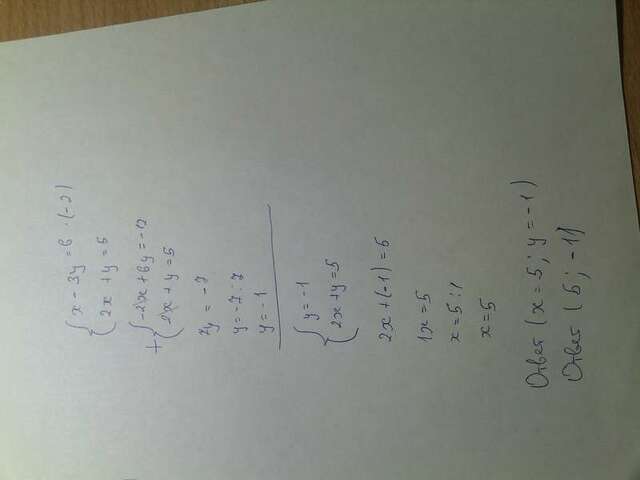 { x - 3y = 6 · (-2)
{ 2x + y = 5
+ { -2x + 6y = -12
{ 2x + y = 5
7y = -7
y = -7 : 7
y = -1
{ y = -1
{ 2x + y = 5
2x + (-1) = 5
1x = 5
x = 5 : 1
x = 5
Ответ (x = 5 ; y = -1)
Ответ (5 ; -1)